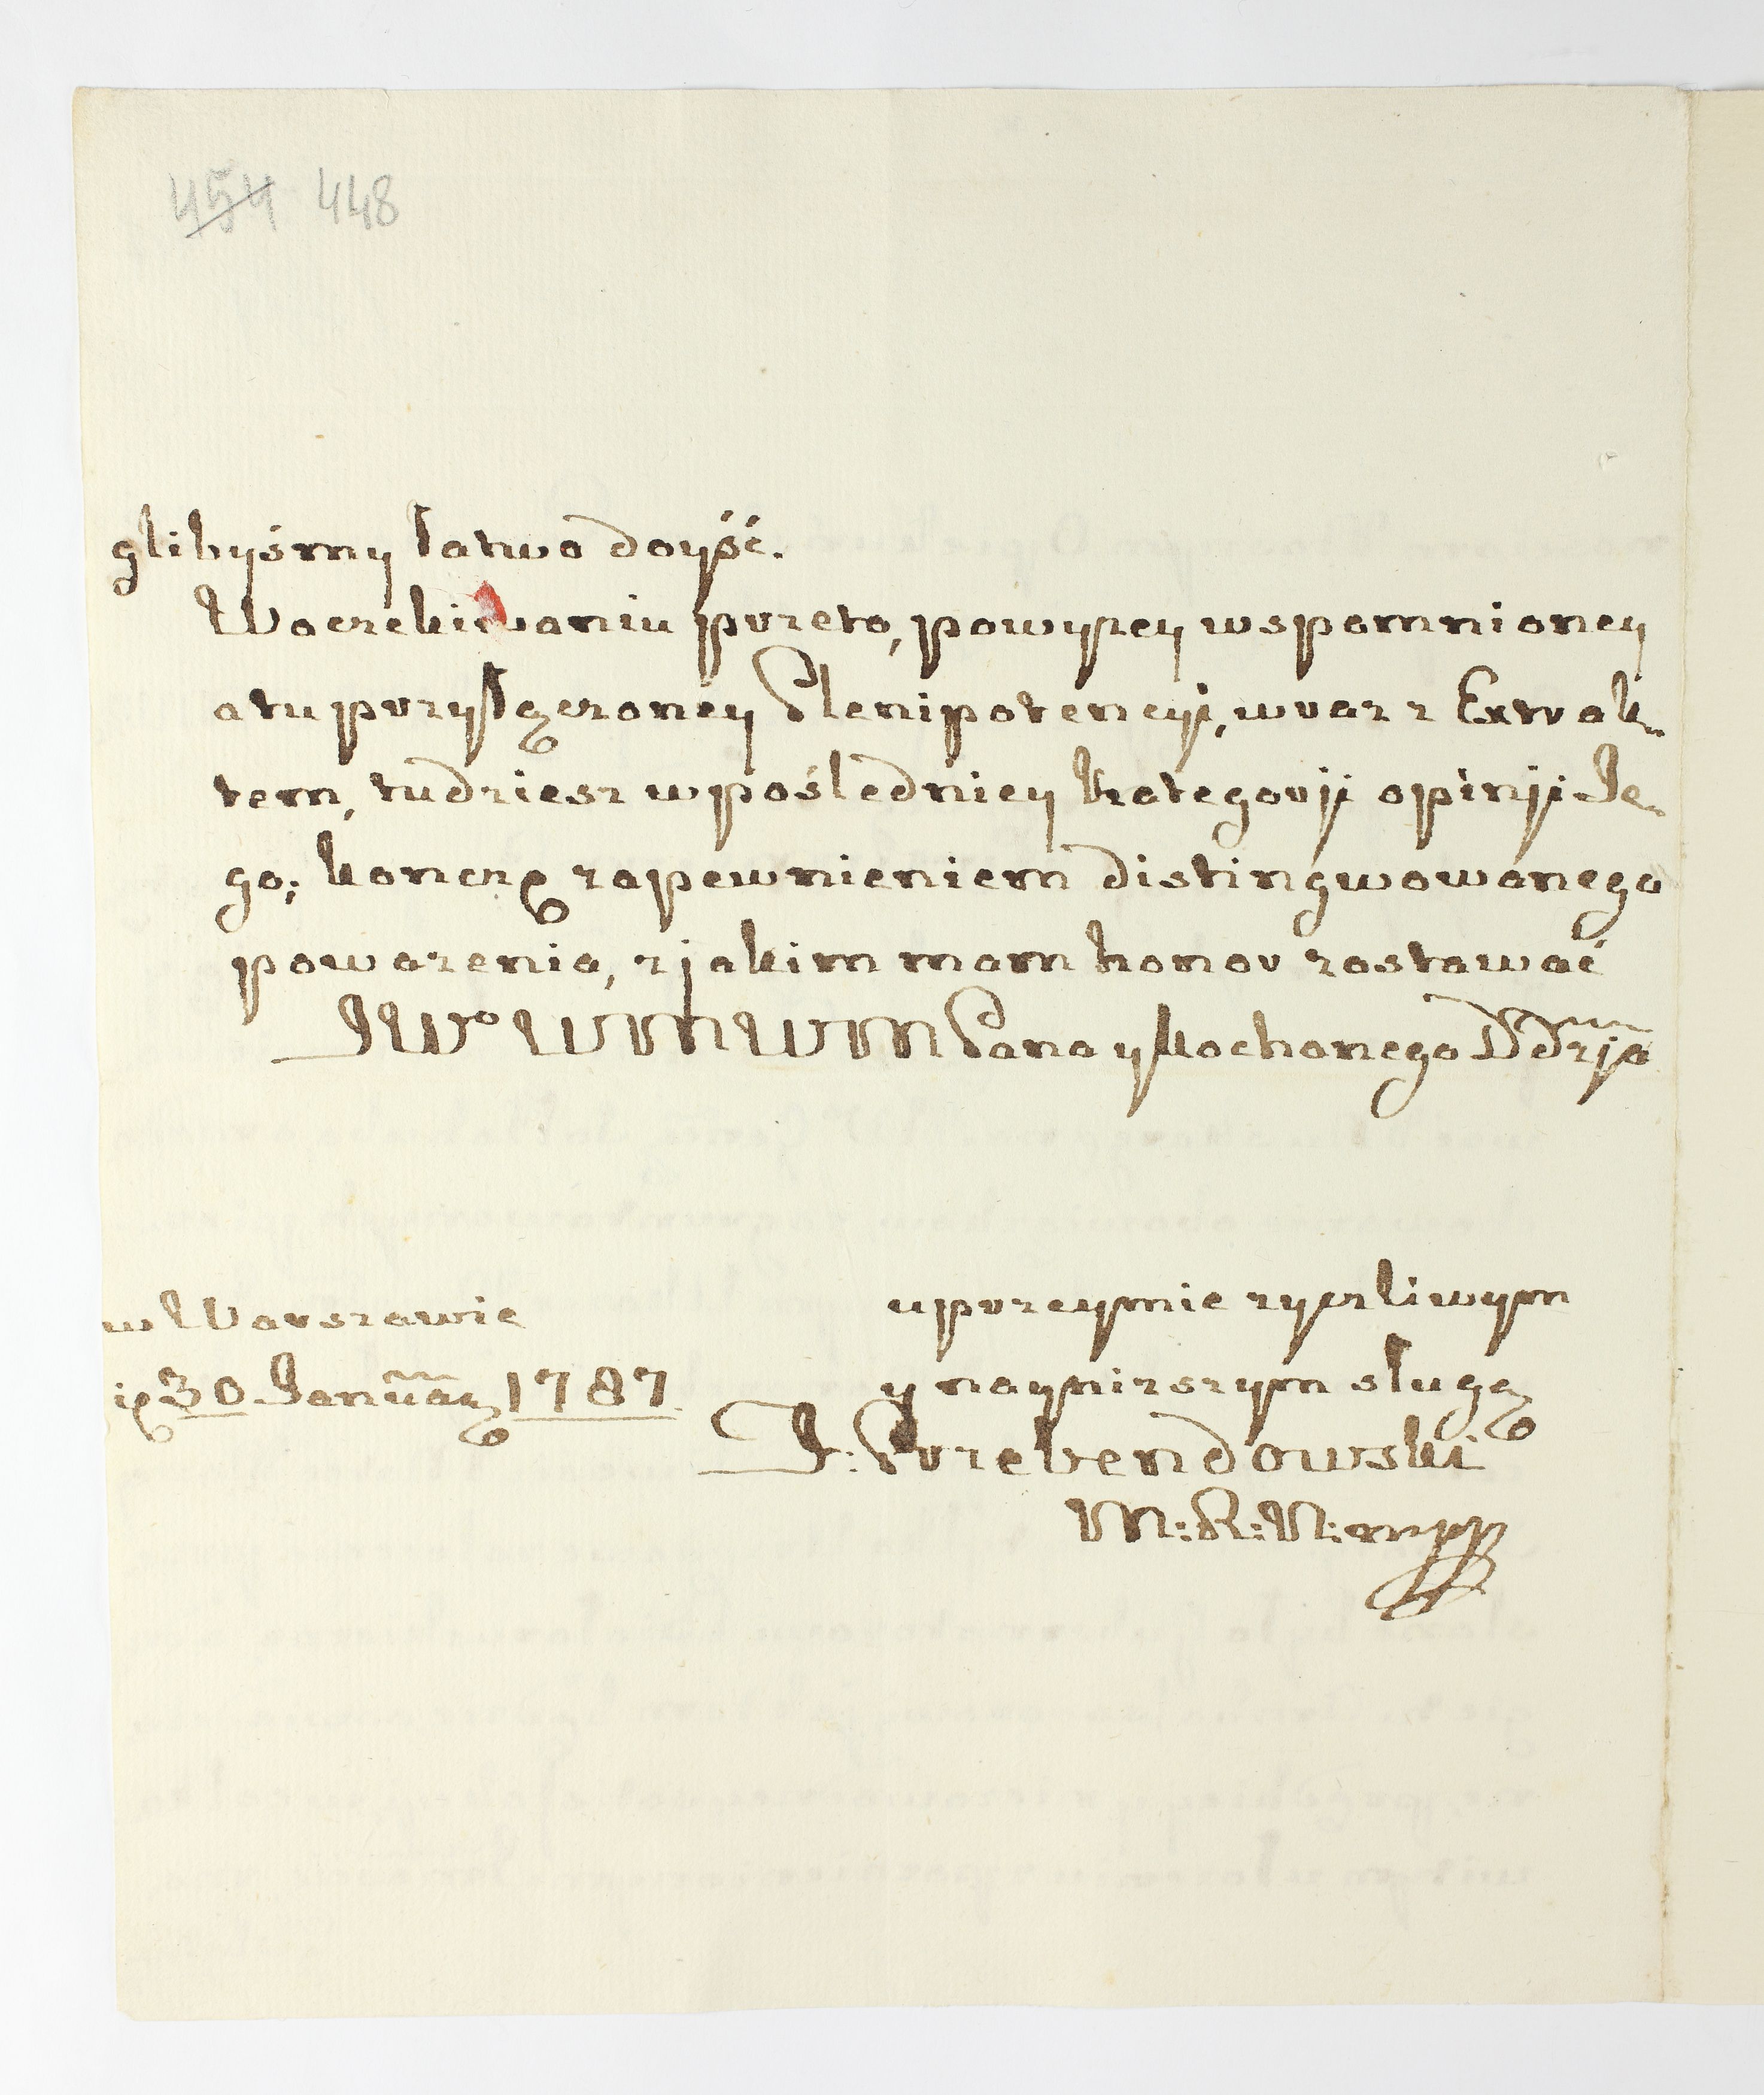 454 448
glibyśmy łatwo doyść.
W oczekiwaniu przeto, powyżey wspomnioney
a tu przyłączoney Plenipotencyi, wraz z Extrak-
tem, tudziesz w pośledniey kategoryi opinji Je-
go; kończę zapewnieniem distingwowanego
poważenia, z jakim mam honor zostawać
JWº WM WM Pana y kochanego Ddzja
w Warszawie
uprzeymie życzliwym
30 Januar 1787
y nayniższym sługą
J: Przebendowski
M: R: N: mpp